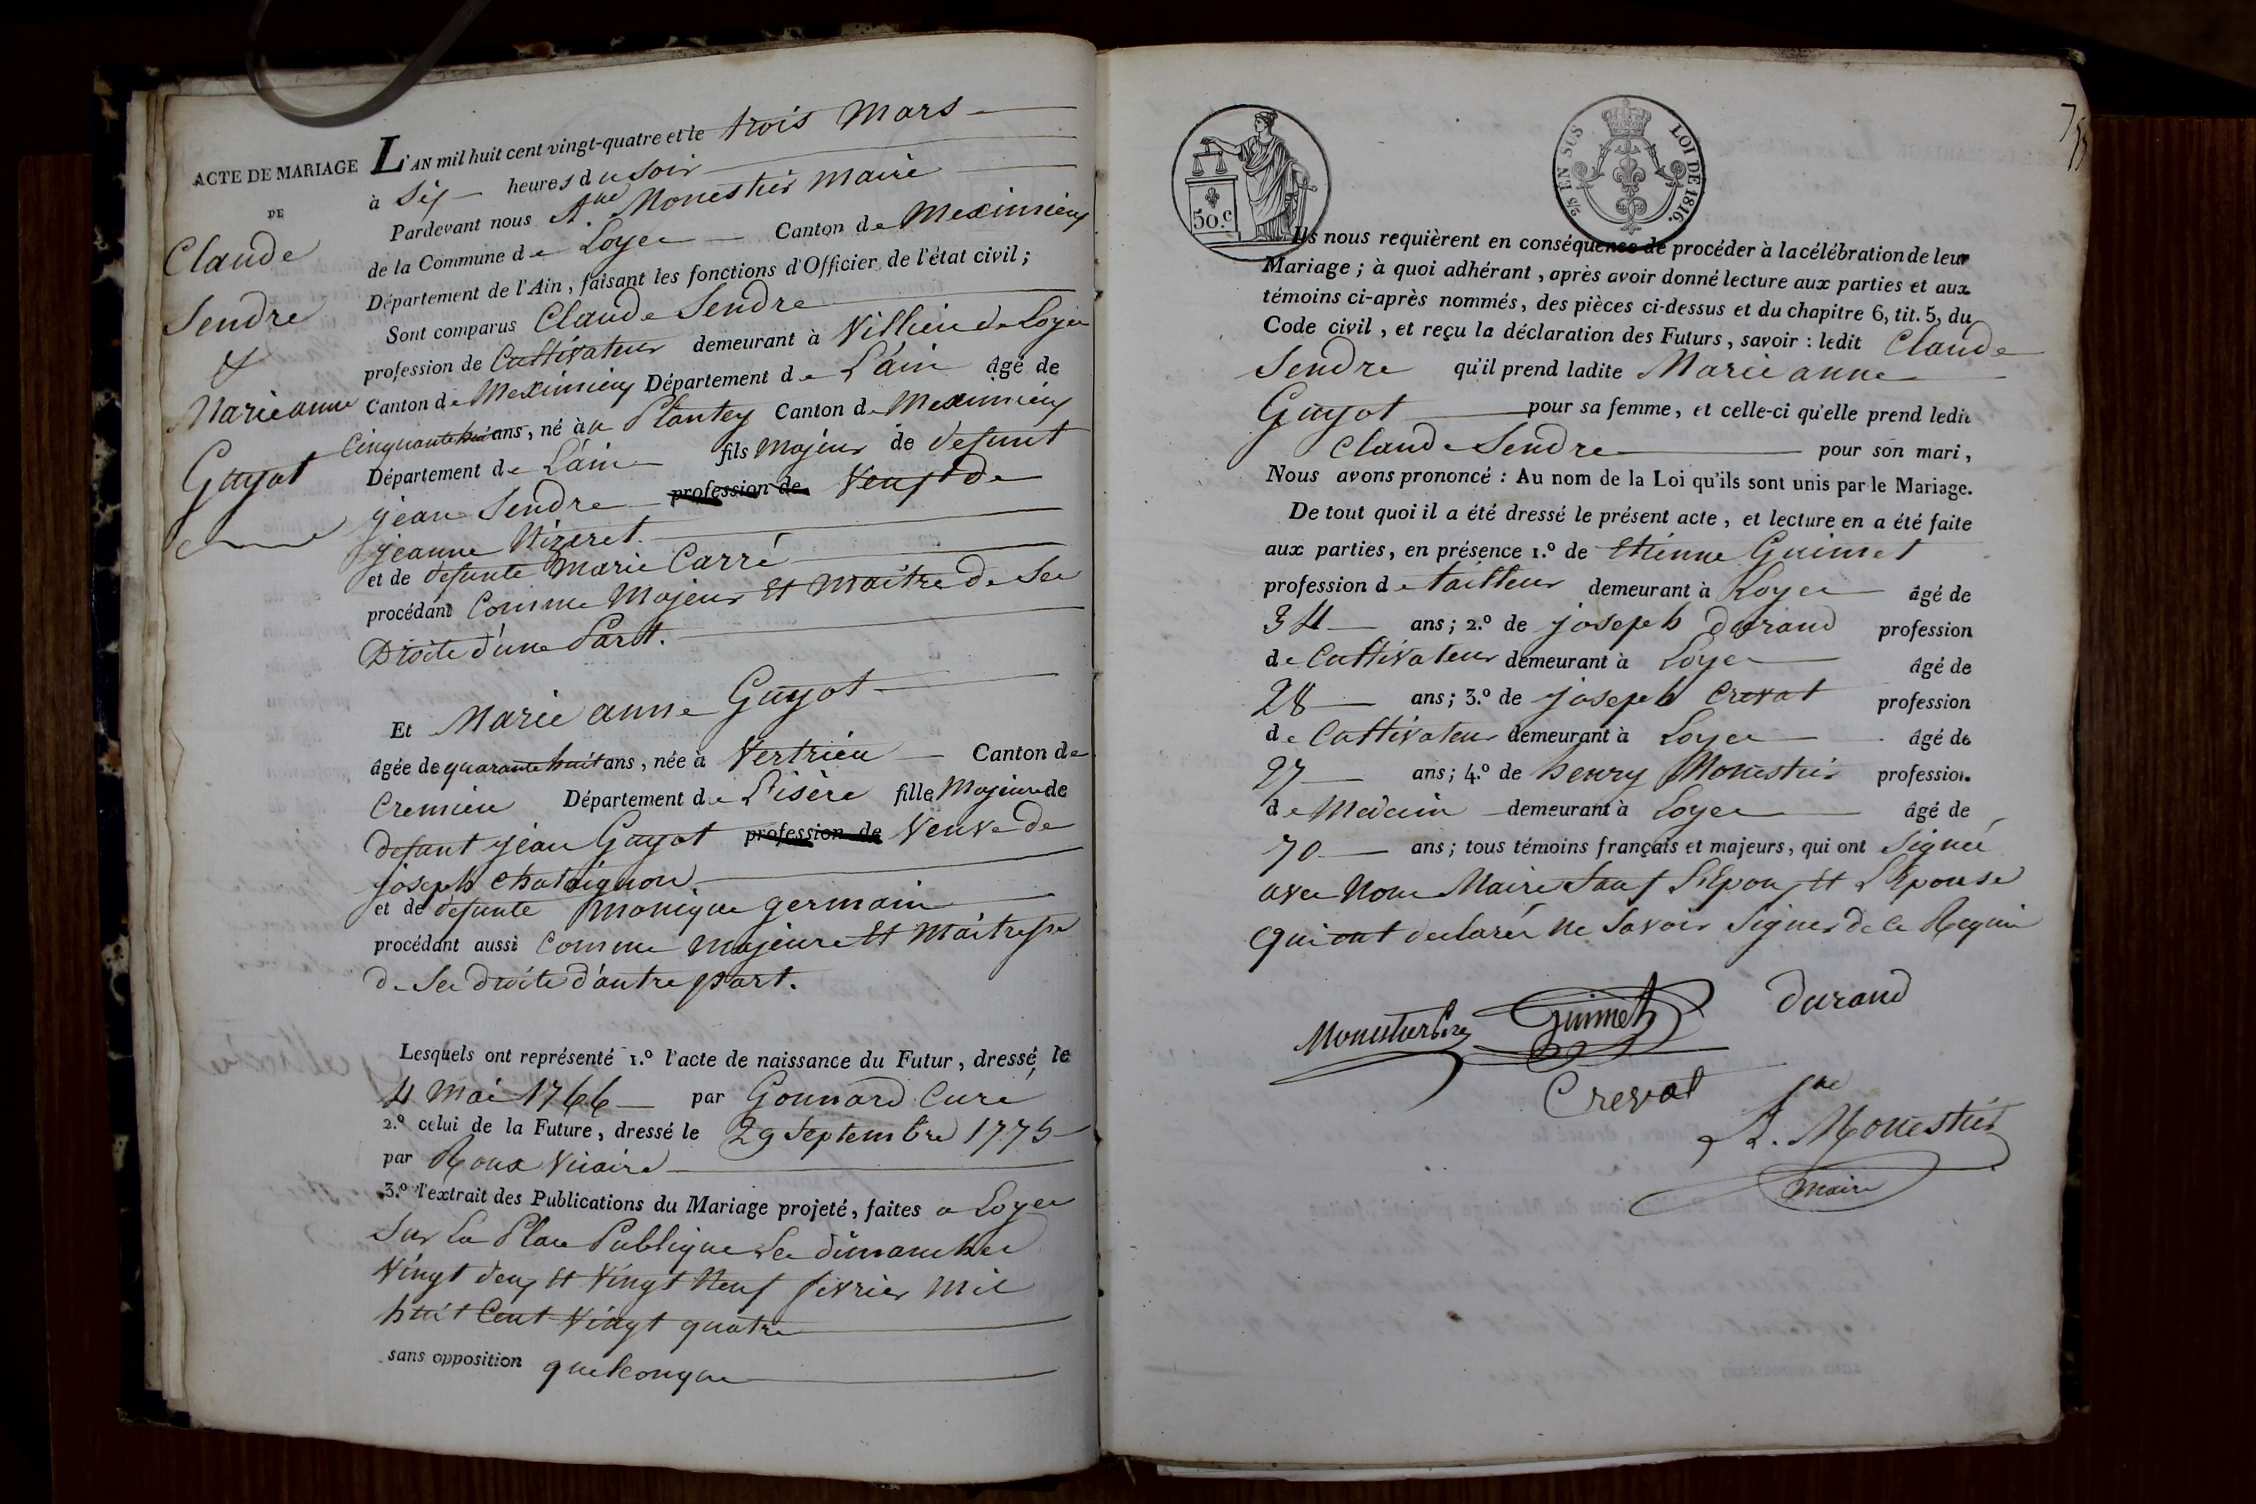 ACTE DE MARIAGE
DE
Claude
Sendre
&
Marie anne
Guyot
L'AN mil huit cent vingt-quatre et le trois Mars
à Six heures du soir
Pardevant nous A.ne Monestier Maire
de la Commune de Loyes Canton de Meximieux
Département de l'Ain, faisant les fonctions d'Officier de l'état civil;
Sont comparus Claude Sendre
profession de Cultivateur demeurant à Villieu de Loyes
Canton de Meximieux Département de L'ain âgé de
Cinquante huit ans, né au Plantey Canton de Meximieux
Département de L'ain fils Majeur de defunt
jean Sendre profession de Veuf de
jeanne Nizeret
et de defunte Marie Carré
procédant Comme Majeur Et Maitre de Ses
Droits d'une Part.
Et Marie anne Guyot
âgée de quarante huit ans, née à Vertrieu Canton de
Cremieu Département de L'isère fille Majeure de
defunt jean Guyot profession de Veuve de
joseph Chataignon
et de defunte Monique germain
procédant aussi Comme Majeure Et Maitresse
de Ses droits d'autre part.
Lesquels ont représenté 1.º l'acte de naissance du Futur, dressé le
4 Mai 1766 par Gonnard Curé
2.º celui de la Future, dressé le 29 Septembre 1775
par Roux Vicaire
3.º l'extrait des Publications du Mariage projeté, faites a Loyes
Sur La Place Publique Les dimanches
Vingt deux Et Vingt Neuf fevrier Mil
huit Cent Vingt quatre
sans opposition quelconque
50.C
2/5 EN SUS
LOI DE 1816.
Ils nous requièrent en conséquence de procéder à la célébration de leur
Mariage; à quoi adhérant, après avoir donné lecture aux parties et aux
témoins ci-après nommés, des pièces ci-dessus et du chapitre 6, tit. 5, du
Code civil, et reçu la déclaration des Futurs, savoir: ledit Claude
Sendre qu'il prend ladite Marie anne
Guyot pour sa femme, et celle-ci qu'elle prend ledit
Claude Sendre pour son mari,
Nous avons prononcé: Au nom de la Loi qu'ils sont unis par le Mariage.
De tout quoi il a été dressé le présent acte, et lecture en a été faite
aux parties, en présence 1.º de Etienne Guimet
profession de tailleur demeurant à Loyes âgé de
34 ans; 2.º de joseph durand profession
de Cultivateur demeurant à Loyes âgé de
28 ans; 3.º de joseph Crevat profession
de Cultivateur demeurant à Loyes âgé de
27 ans; 4.º de henry Monestier profession
de Medecin demeurant à Loyes âgé de
70 ans; tous témoins français et majeurs, qui ont Signé
avec Nous Maire Sauf L'Epoux Et L'Epouse
qui ont declarés Ne Savoir Signer de ce Requis
Monestier Guimet durand
Crevat
A.ne Monestier
maire